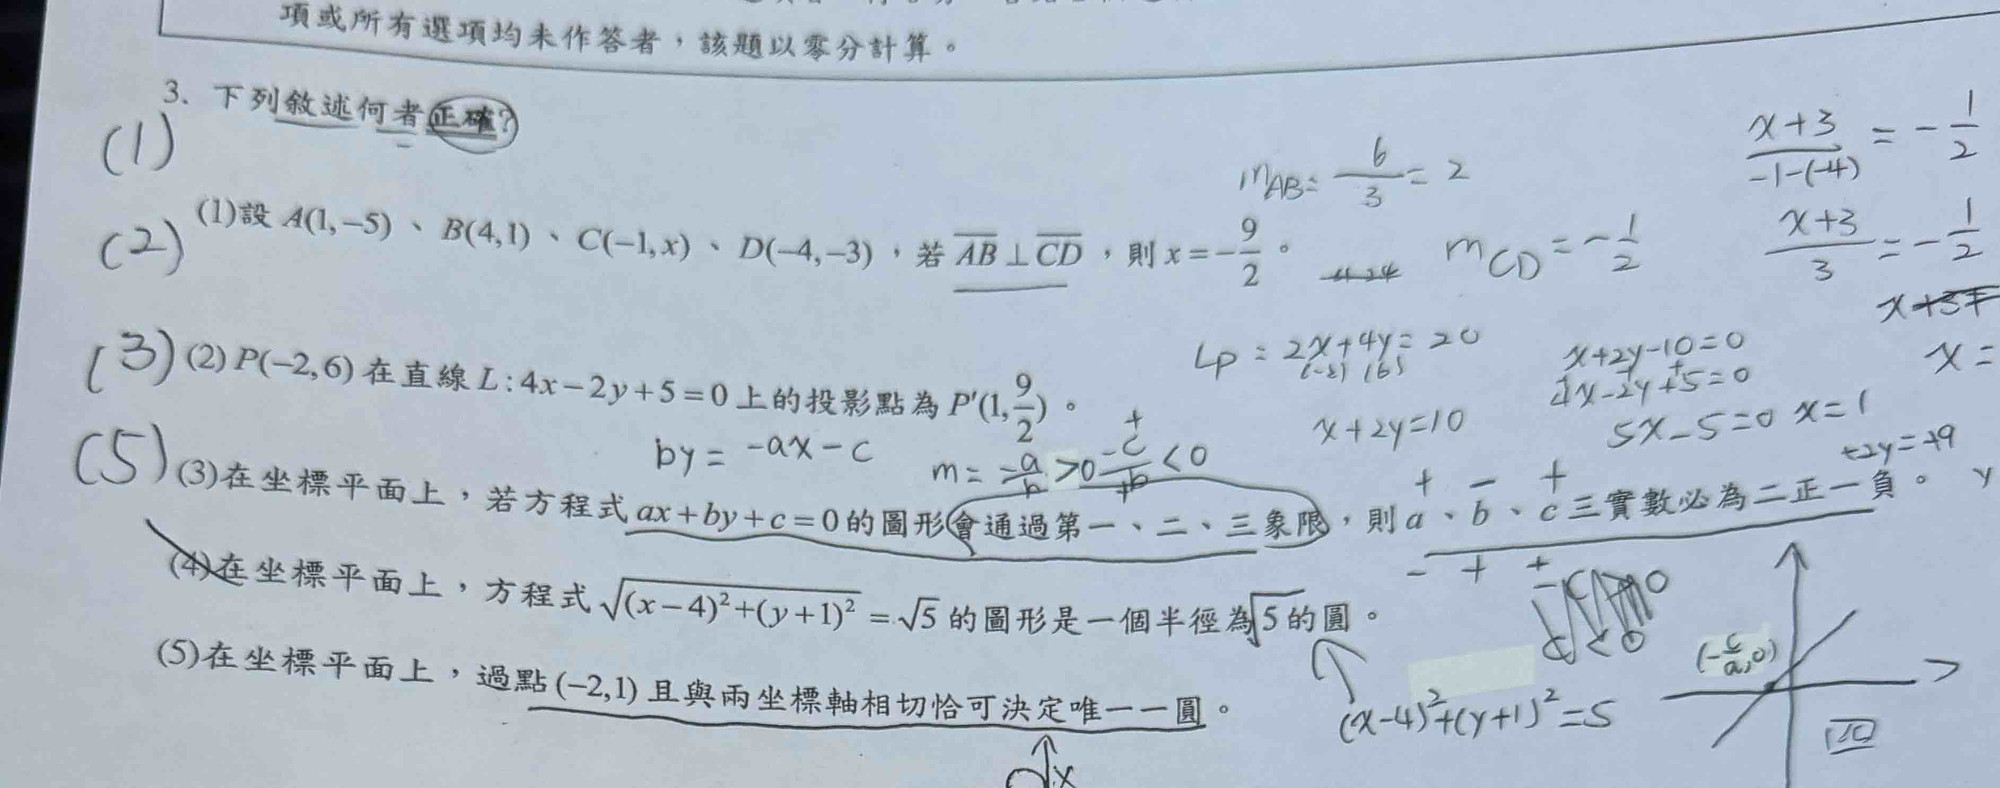 項或所有選項均未作答者，該題以零分計算。
3. 下列敘述何者正確?
(1)
(2)
(3)
(5)
(1)設 A(1,−5)、B(4,1)、C(−1,x)、D(−4,−3)，若 \overline{AB}⊥\overline{CD}，則 x=−9/2。
m_{AB}= 6/3 = 2
m_{CD} = −1/2
(x+3)/(−1−(−4)) = −1/2
(x+3)/3 = −1/2
x+3=
x=
(2) P(−2,6) 在直線 L:4x−2y+5=0 上的投影點為 P′(1,9/2)。
Lp = 2x+4y = 20
(-2) (6)
x+2y=10
x+2y−10=0
4x−2y+5=0
5x−5=0 x=1
+2y=+9
y
by = −ax − c
m = −a/b >0 −c/b <0
+
(3)在坐標平面上，若方程式 ax+by+c=0 的圖形會通過第一、二、三象限，則 a、b、c 三實數必為二正一負。
+ − +
− + +
(4)在坐標平面上，方程式 √((x−4)²+(y+1)²) = √5 的圖形是一個半徑為√5 的圓。
(x−4)²+(y+1)²=5
(−c/a,0)
(5)在坐標平面上，過點 (−2,1) 且與兩坐標軸相切恰可決定唯一一圓。